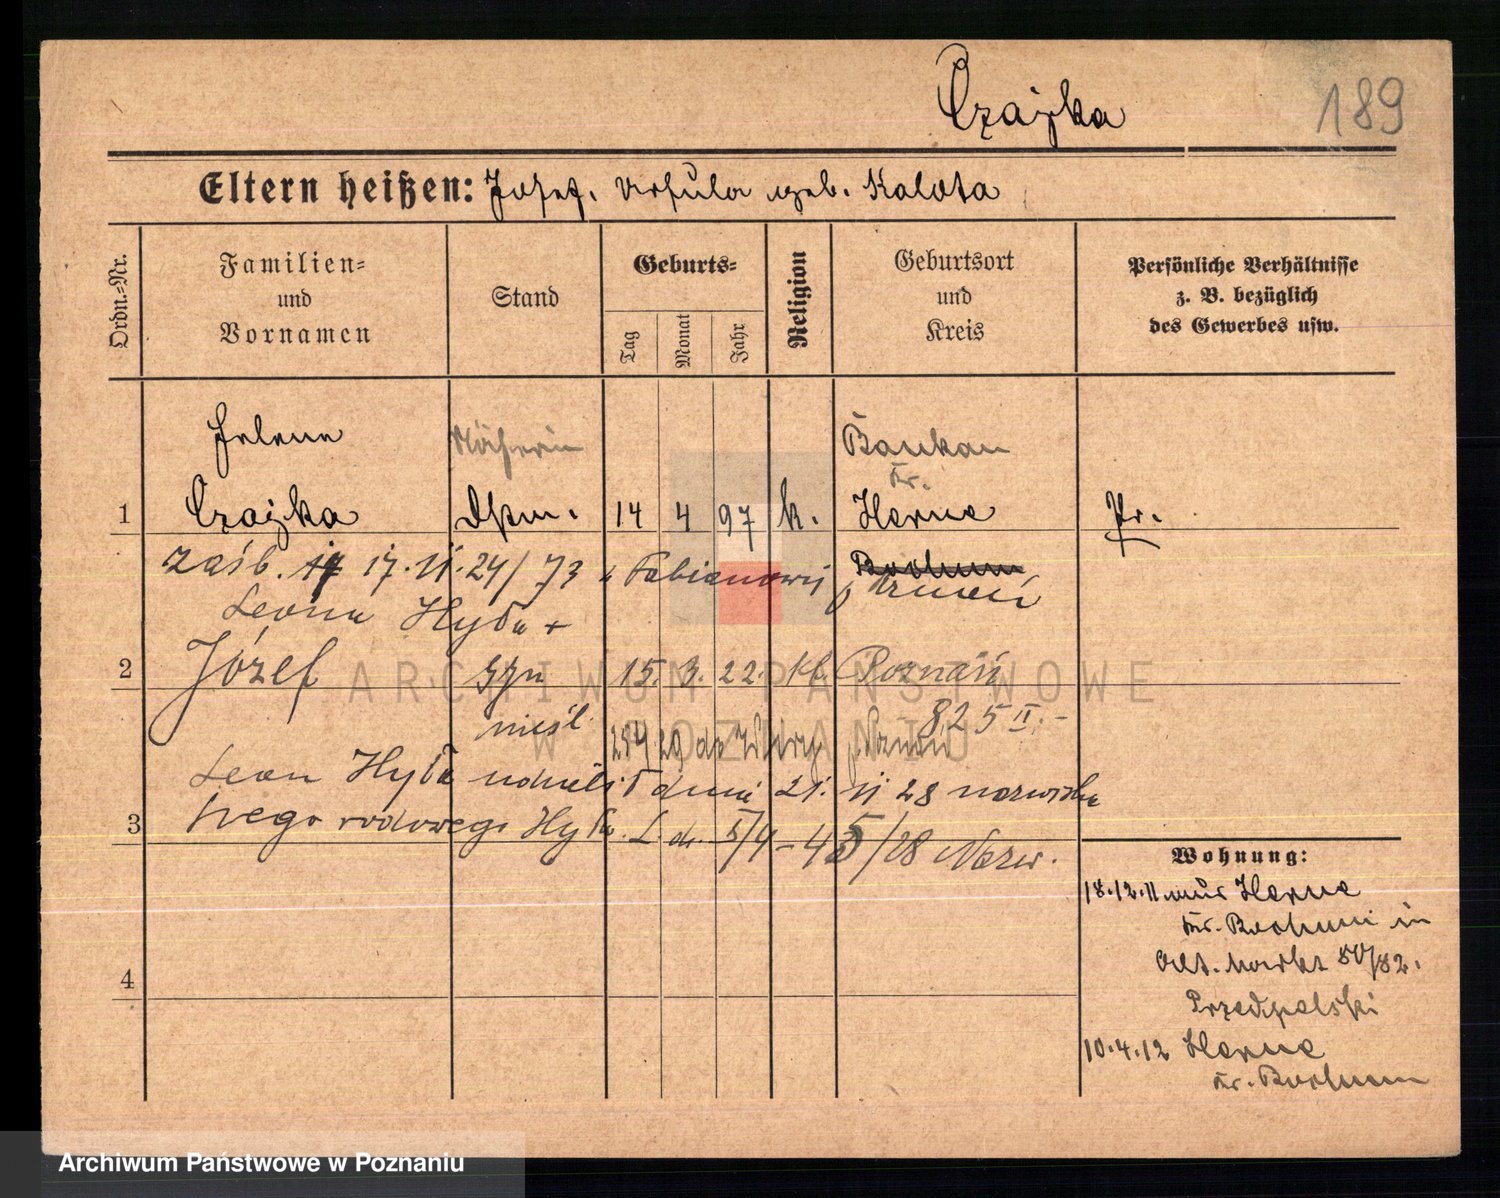 Czajka
189
Eltern heißen: Josef. Ursula geb. Kalota
Ordn.=Nr.
Familien=
und
Vornamen
Stand
Geburts=
Tag
Monat
Jahr
Religion
Geburtsort
und
Kreis
Persönliche Verhältnisse
z. B. bezüglich
des Gewerbes usw.
Helene
Näherin
Baukau
Kr.
1 Czajka Dkm. 14 4 97 k. Herne Pr.
zaśb. 17 17. II. 24/73 Bochum
Leona Hyba
2 Józef Syn 15. 3. 22. kt. Poznań
nieśl. 825 II. -
Leon Hyba udzielił dnia 21. II 28 nazwiska
3 swego rodowego Hyba. L. dz. 5/4 - 45/28 Nazw.
4
Wohnung:
18.12.11 aus Herne
Kr. Bochum in
Alt. Markt 80/82.
Przedpelski
10.4.12 Herne
Kr. Bochum
ARCHIWUM PAŃSTWOWE
W POZNANIU
Archiwum Państwowe w Poznaniu